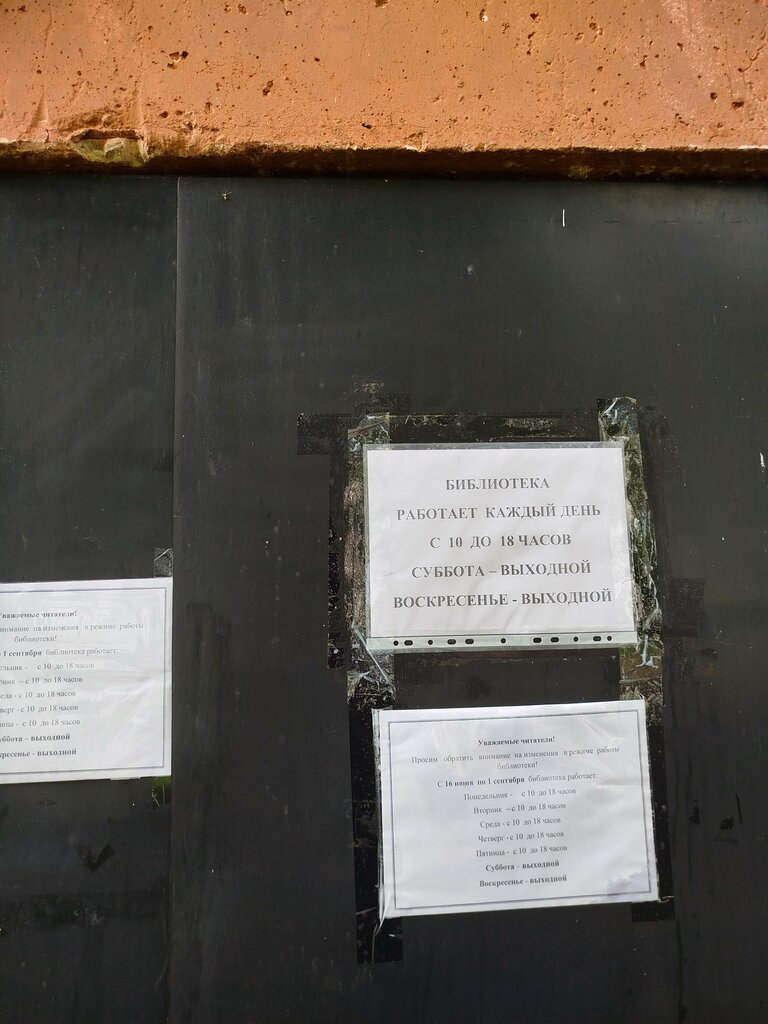 БИБЛИОТЕКА
РАБОТАЕТ КАЖДЫЙ ДЕНЬ
С 10 ДО 18 ЧАСОВ
СУББОТА – ВЫХОДНОЙ
ВОСКРЕСЕНЬЕ - ВЫХОДНОЙ
Уважаемые читатели!
Просим обратить внимание на изменения в режиме работы
библиотеки!
С 16 июня по 1 сентября библиотека работает:
Понедельник - с 10 до 18 часов
Вторник – с 10 до 18 часов
Среда - с 10 до 18 часов
Четверг - с 10 до 18 часов
Пятница - с 10 до 18 часов
Суббота – выходной
Воскресенье - выходной
уважаемые читатели!
внимание на изменения в режиме работы
библиотеки!
1 сентября библиотека работает:
ельник - с 10 до 18 часов
рник – с 10 до 18 часов
еда - с 10 до 18 часов
верг - с 10 до 18 часов
ница - с 10 до 18 часов
уббота – выходной
кресенье - выходной